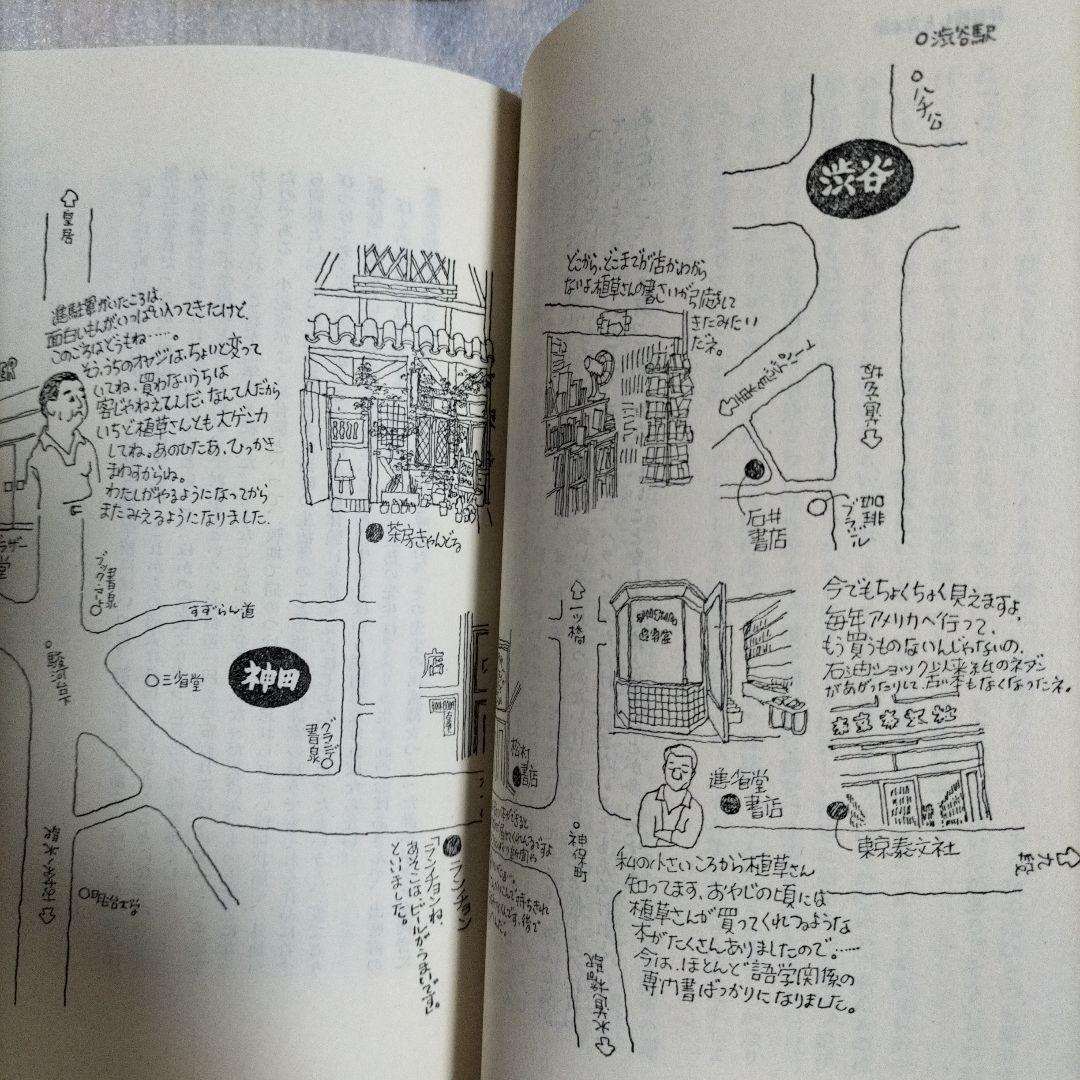 渋谷駅
ハチ公
渋谷
どこから、どこまでが店かわから
ないよ、植草さんの書さいが引越して
きたみたい
だネ。
石井
書店
珈琲
ブラジル
皇居
進駐軍がいたころは、
面白いもんがいっぱい入ってきたけど、
このごろはどうもね……。
そう、うちのオヤジは、ちょいと変って
いてね、買わないうちは
客じゃねえてんだ、なんて人だから
いちど植草さんとも大ゲンカ
してね。あのひたあ、ひっかき
まわすからね。
わたしがやるようになってから
またみえるようになりました。
茶房きゃんどる
書泉
ブック・マート
すずらん道
駿河台下
三省堂
神田
書泉
グランデ
店
お茶ノ水駅
明治大学
ランチョン
「ランチョンね、
あそこは、ビールがうまいです。」
といいました。
一ツ橋
松村
書店
進省堂
書店
神保町
水道橋駅
今でもちょくちょく見えますよ、
毎年アメリカへ行って、
もう買うものないんじゃないの、
石油ショック以来、私のネダン
があがったりして、古い本もなくなったネ。
東京泰文社
九段
私の小さいころから植草さん
知ってます、おやじの頃には
植草さんが買ってくれるような
本がたくさんありましたので。……
今は、ほとんど語学関係の
専門書ばっかりになりました。